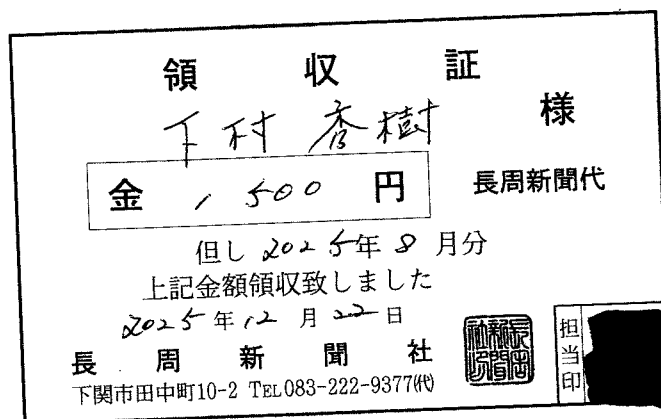 領収証
下村秀樹 様
金 1500 円 長周新聞代
但し 2025年 8 月分
上記金額領収致しました
2025 年 12 月 22 日
長周新聞社
下関市田中町10-2 TEL083-222-9377㈹
長周新聞社印
担当印